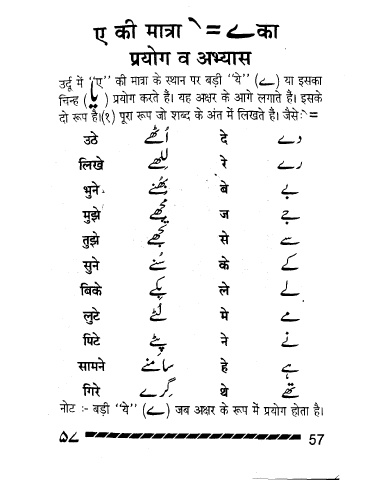 ए की मात्रा े = ے का
प्रयोग व अभ्यास
उर्दू में "ए" की मात्रा के स्थान पर बड़ी "ये" (ے) या इसका
चिन्ह ( ) प्रयोग करते हैं। यह अक्षर के आगे लगाते हैं। इसके
दो रूप है।(१) पूरा रूप जो शब्द के अंत में लिखते हैं। जैसेः े =
उठे اُٹھے दे دے
लिखे لکھے रे رے
भुने بھُنے बे بے
मुझे مجھے ज جے
तुझे تجھے से سے
सुने سُنے के کے
बिके بِکے ले لے
लुटे لُٹے मे مے
पिटे پٹے ने نے
सामने سامنے हे ہے
गिरे گِرے थे تھے
नोट :- बड़ी "ये" (ے) जब अक्षर के रूप में प्रयोग होता है।
۵۷ 57